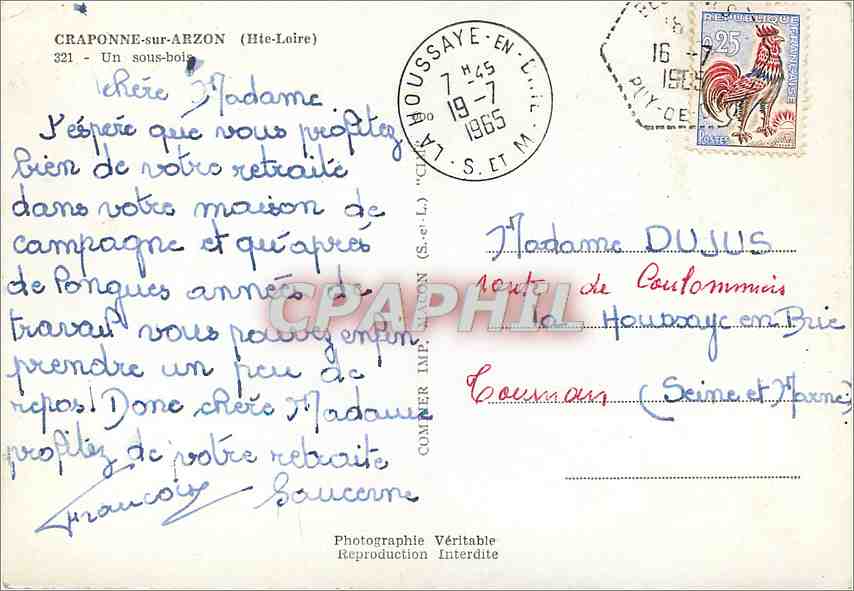 CRAPONNE-sur-ARZON (Hte-Loire)
321 - Un sous-bois
chère Madame
J'espère que vous profitez
bien de votre retraite
dans votre maison de
campagne et qu'après
de longues années de
travail vous pouvez enfin
prendre un peu de
repos! Donc chère Madame
profitez de votre retraite
Saucerne
COMBIER IMP. MACON (S.-et-L.)
LA HOUSSAYE-EN-BRIE
7 H 45
19-7
1965
S. ET M.
16 -7
1965
PUY-DE-
REPUBLIQUE FRANÇAISE
0,25
POSTES
Madame DUJUS
route de Coulommiers
La Houssaye en Brie
Tournan (Seine et Marne)
CPAPHIL
Photographie Véritable
Reproduction Interdite